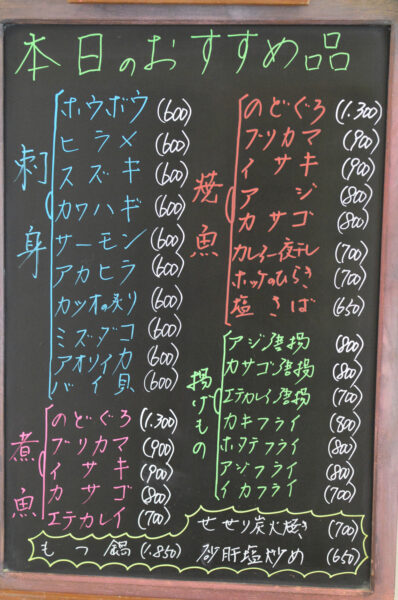 本日のおすすめ品
刺身
ホウボウ (600)
ヒラメ (600)
スズキ (600)
カワハギ (600)
サーモン (600)
アカヒラ (600)
カツオの炙り (600)
ミズダコ (600)
アオリイカ (600)
バイ貝 (600)
煮魚
のどぐろ (1.300)
ブリカマ (900)
イサキ (900)
カサゴ (800)
エテカレイ (700)
焼魚
のどぐろ (1.300)
ブリカマ (900)
イサキ (900)
アジ (800)
カサゴ (800)
カレイ一夜干し (700)
ホッケのひらき (700)
塩さば (650)
揚げもの
アジ唐揚 (800)
カサゴ唐揚 (800)
エテカレイ唐揚 (700)
カキフライ (800)
ホタテフライ (800)
アジフライ (800)
イカフライ (700)
せせり炭火焼き (700)
もつ鍋 (1.850)
砂肝塩炒め (650)